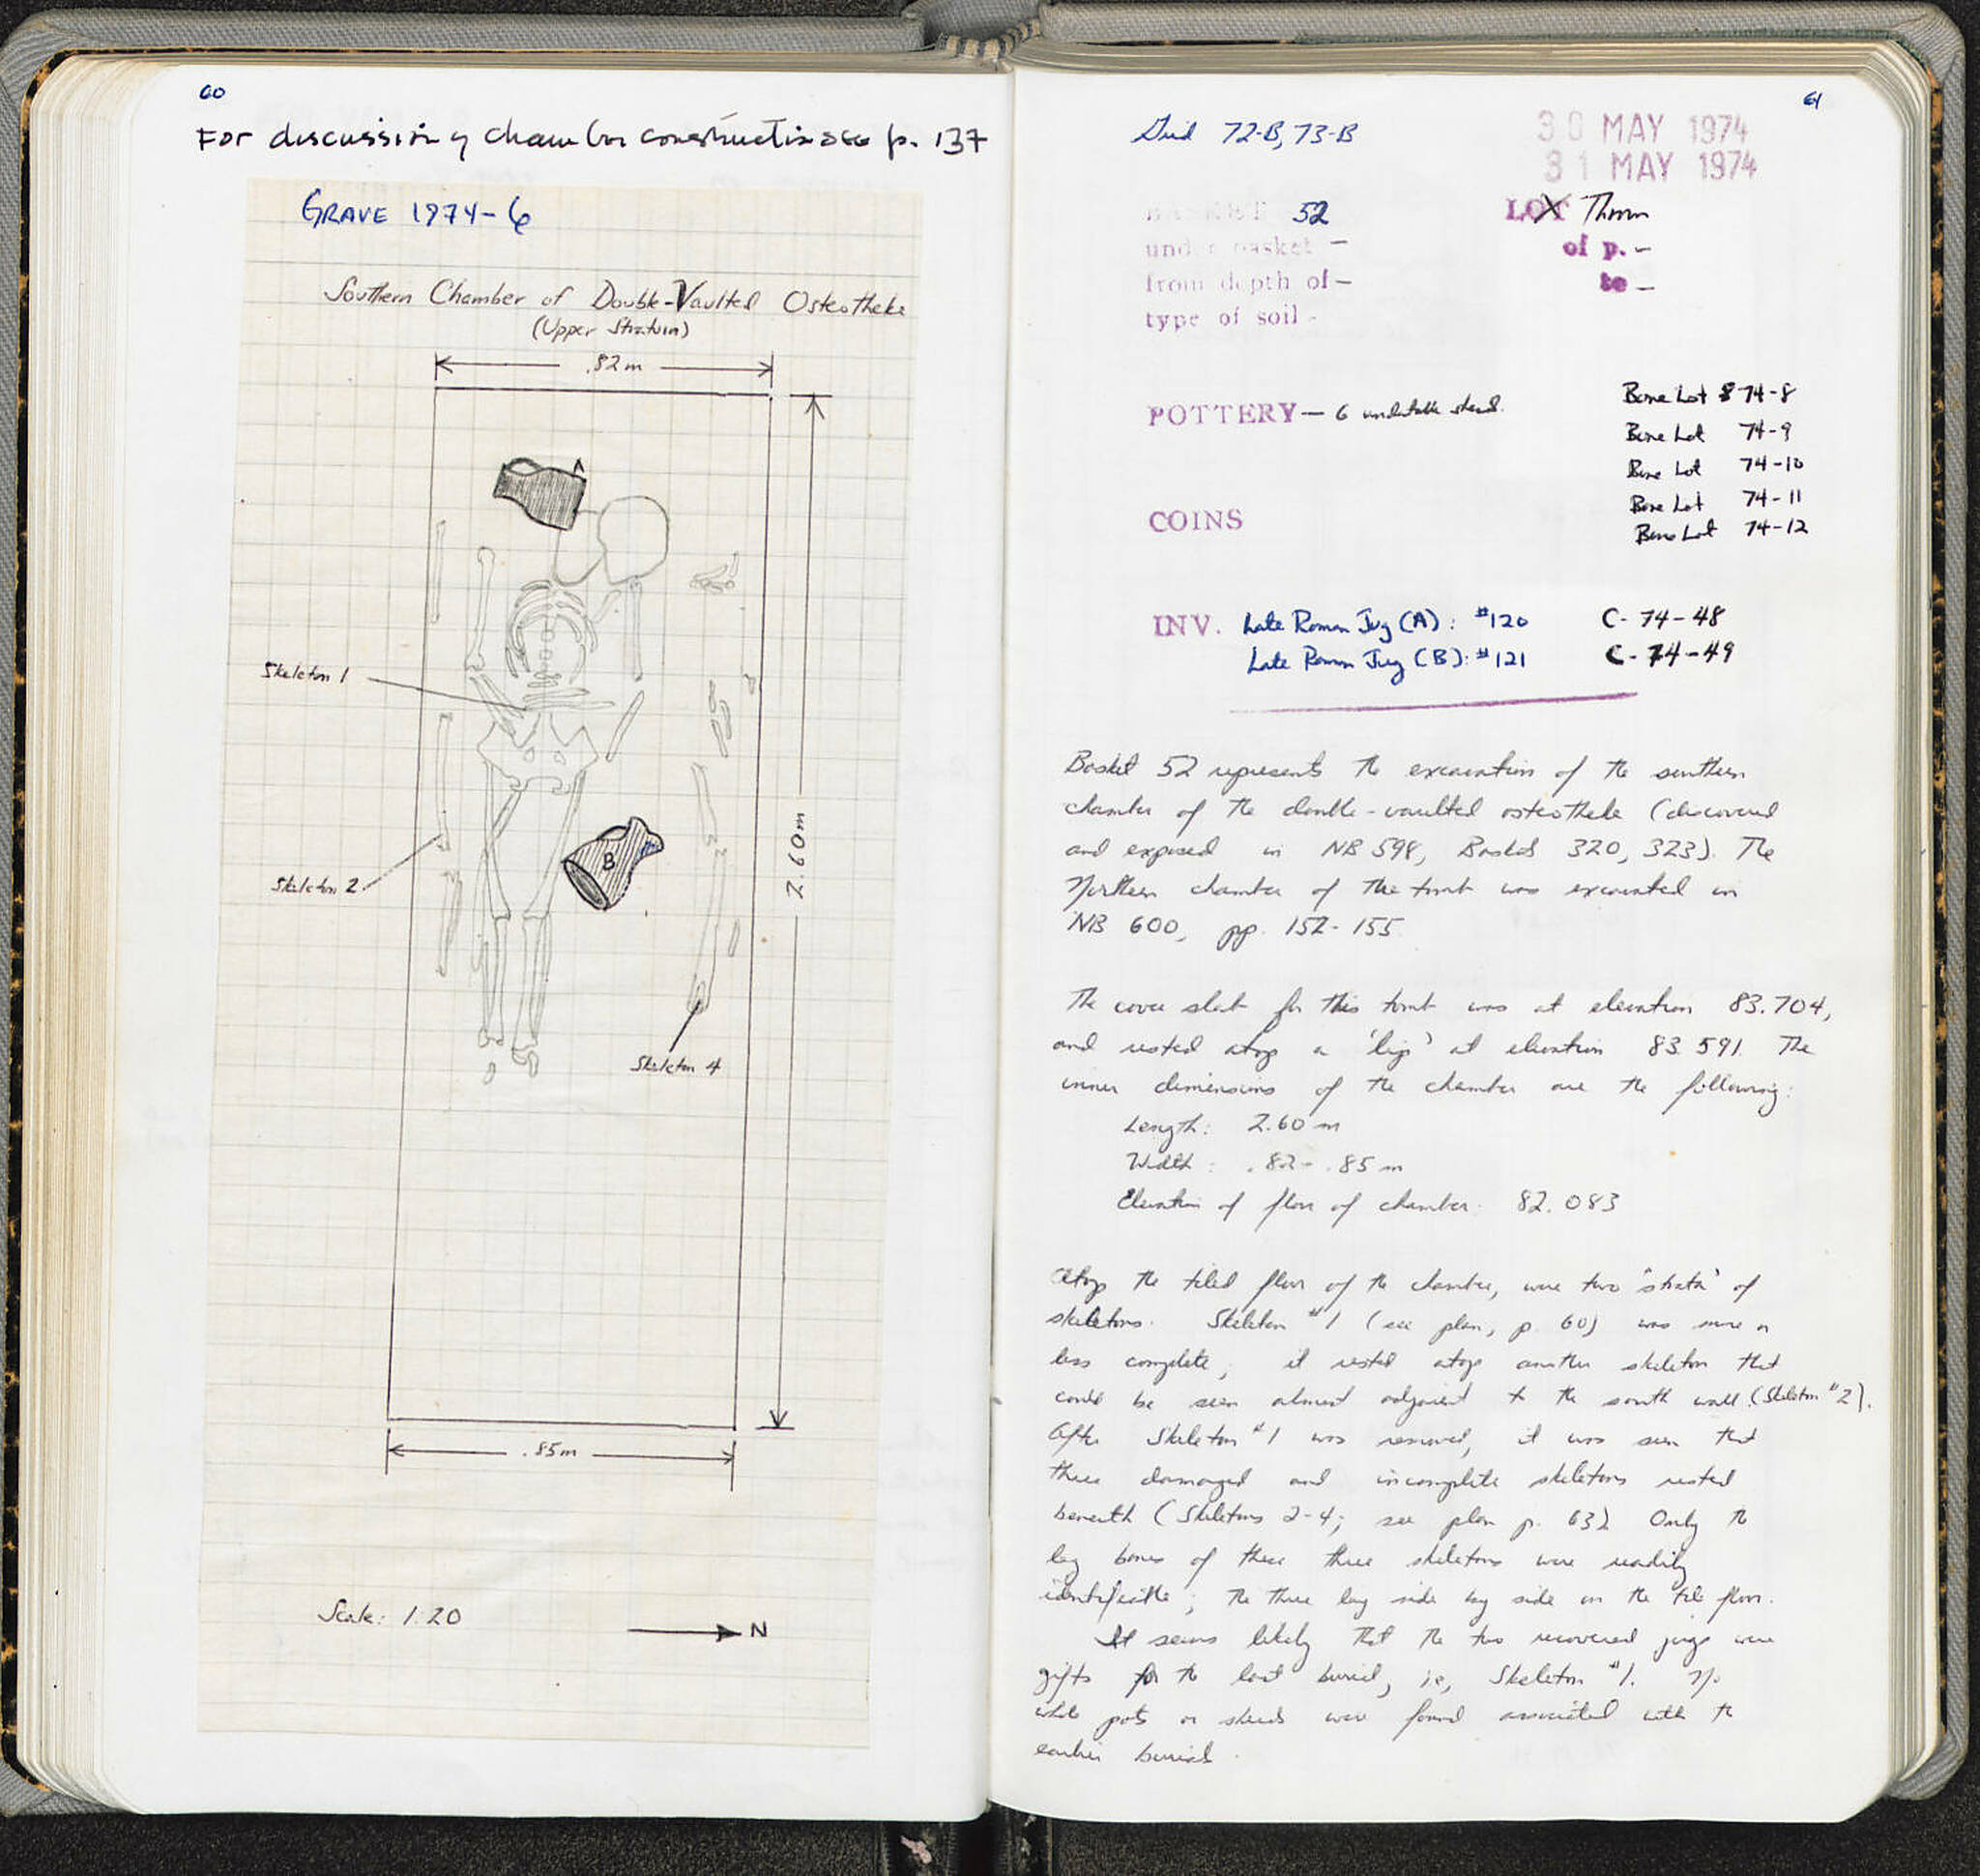 60
For discussion of chamber construction see p. 137
GRAVE 1974-6
Southern Chamber of Double-Vaulted Osteotheke
(Upper Stratum)
.82m
A
Skeleton 1
B
2.60m
Skeleton 2
Skeleton 4
.85m
Scale: 1:20
N
61
Grid 72-B, 73-B
30 MAY 1974
31 MAY 1974
BASKET 52
LOT Thrown
under basket -
of p. -
from depth of -
to -
type of soil -
POTTERY - 6 undatable sherds.
Bone Lot 74-8
Bone Lot 74-9
Bone Lot 74-10
Bone Lot 74-11
Bone Lot 74-12
COINS
INV. Late Roman Jug (A): #120 C-74-48
Late Roman Jug (B): #121 C-74-49
Basket 52 represents the excavation of the southern
chamber of the double-vaulted osteotheke (discovered
and exposed in NB 598, Baskets 320, 323). The
Northern chamber of the tomb was excavated in
NB 600, pp. 152-155
The cover slab for this tomb was at elevation 83.704,
and rested atop a 'lip' at elevation 83.591. The
inner dimensions of the chamber are the following:
Length: 2.60 m
Width: .82 - .85 m
Elevation of floor of chamber: 82.083
Atop the tiled floor of the chamber, were two 'strata' of
skeletons. Skeleton #1 (see plan, p. 60) was more or
less complete; it rested atop another skeleton that
could be seen almost adjacent to the south wall (Skeleton #2).
After Skeleton #1 was removed, it was seen that
three damaged and incomplete skeletons rested
beneath (Skeletons 2-4; see plan p. 63). Only the
leg bones of these three skeletons were readily
identifiable; the three lay side by side on the tile floor.
It seems likely that the two recovered jugs were
gifts for the last burial, ie, Skeleton #1. No
whole pots or sherds were found associated with the
earlier burials.